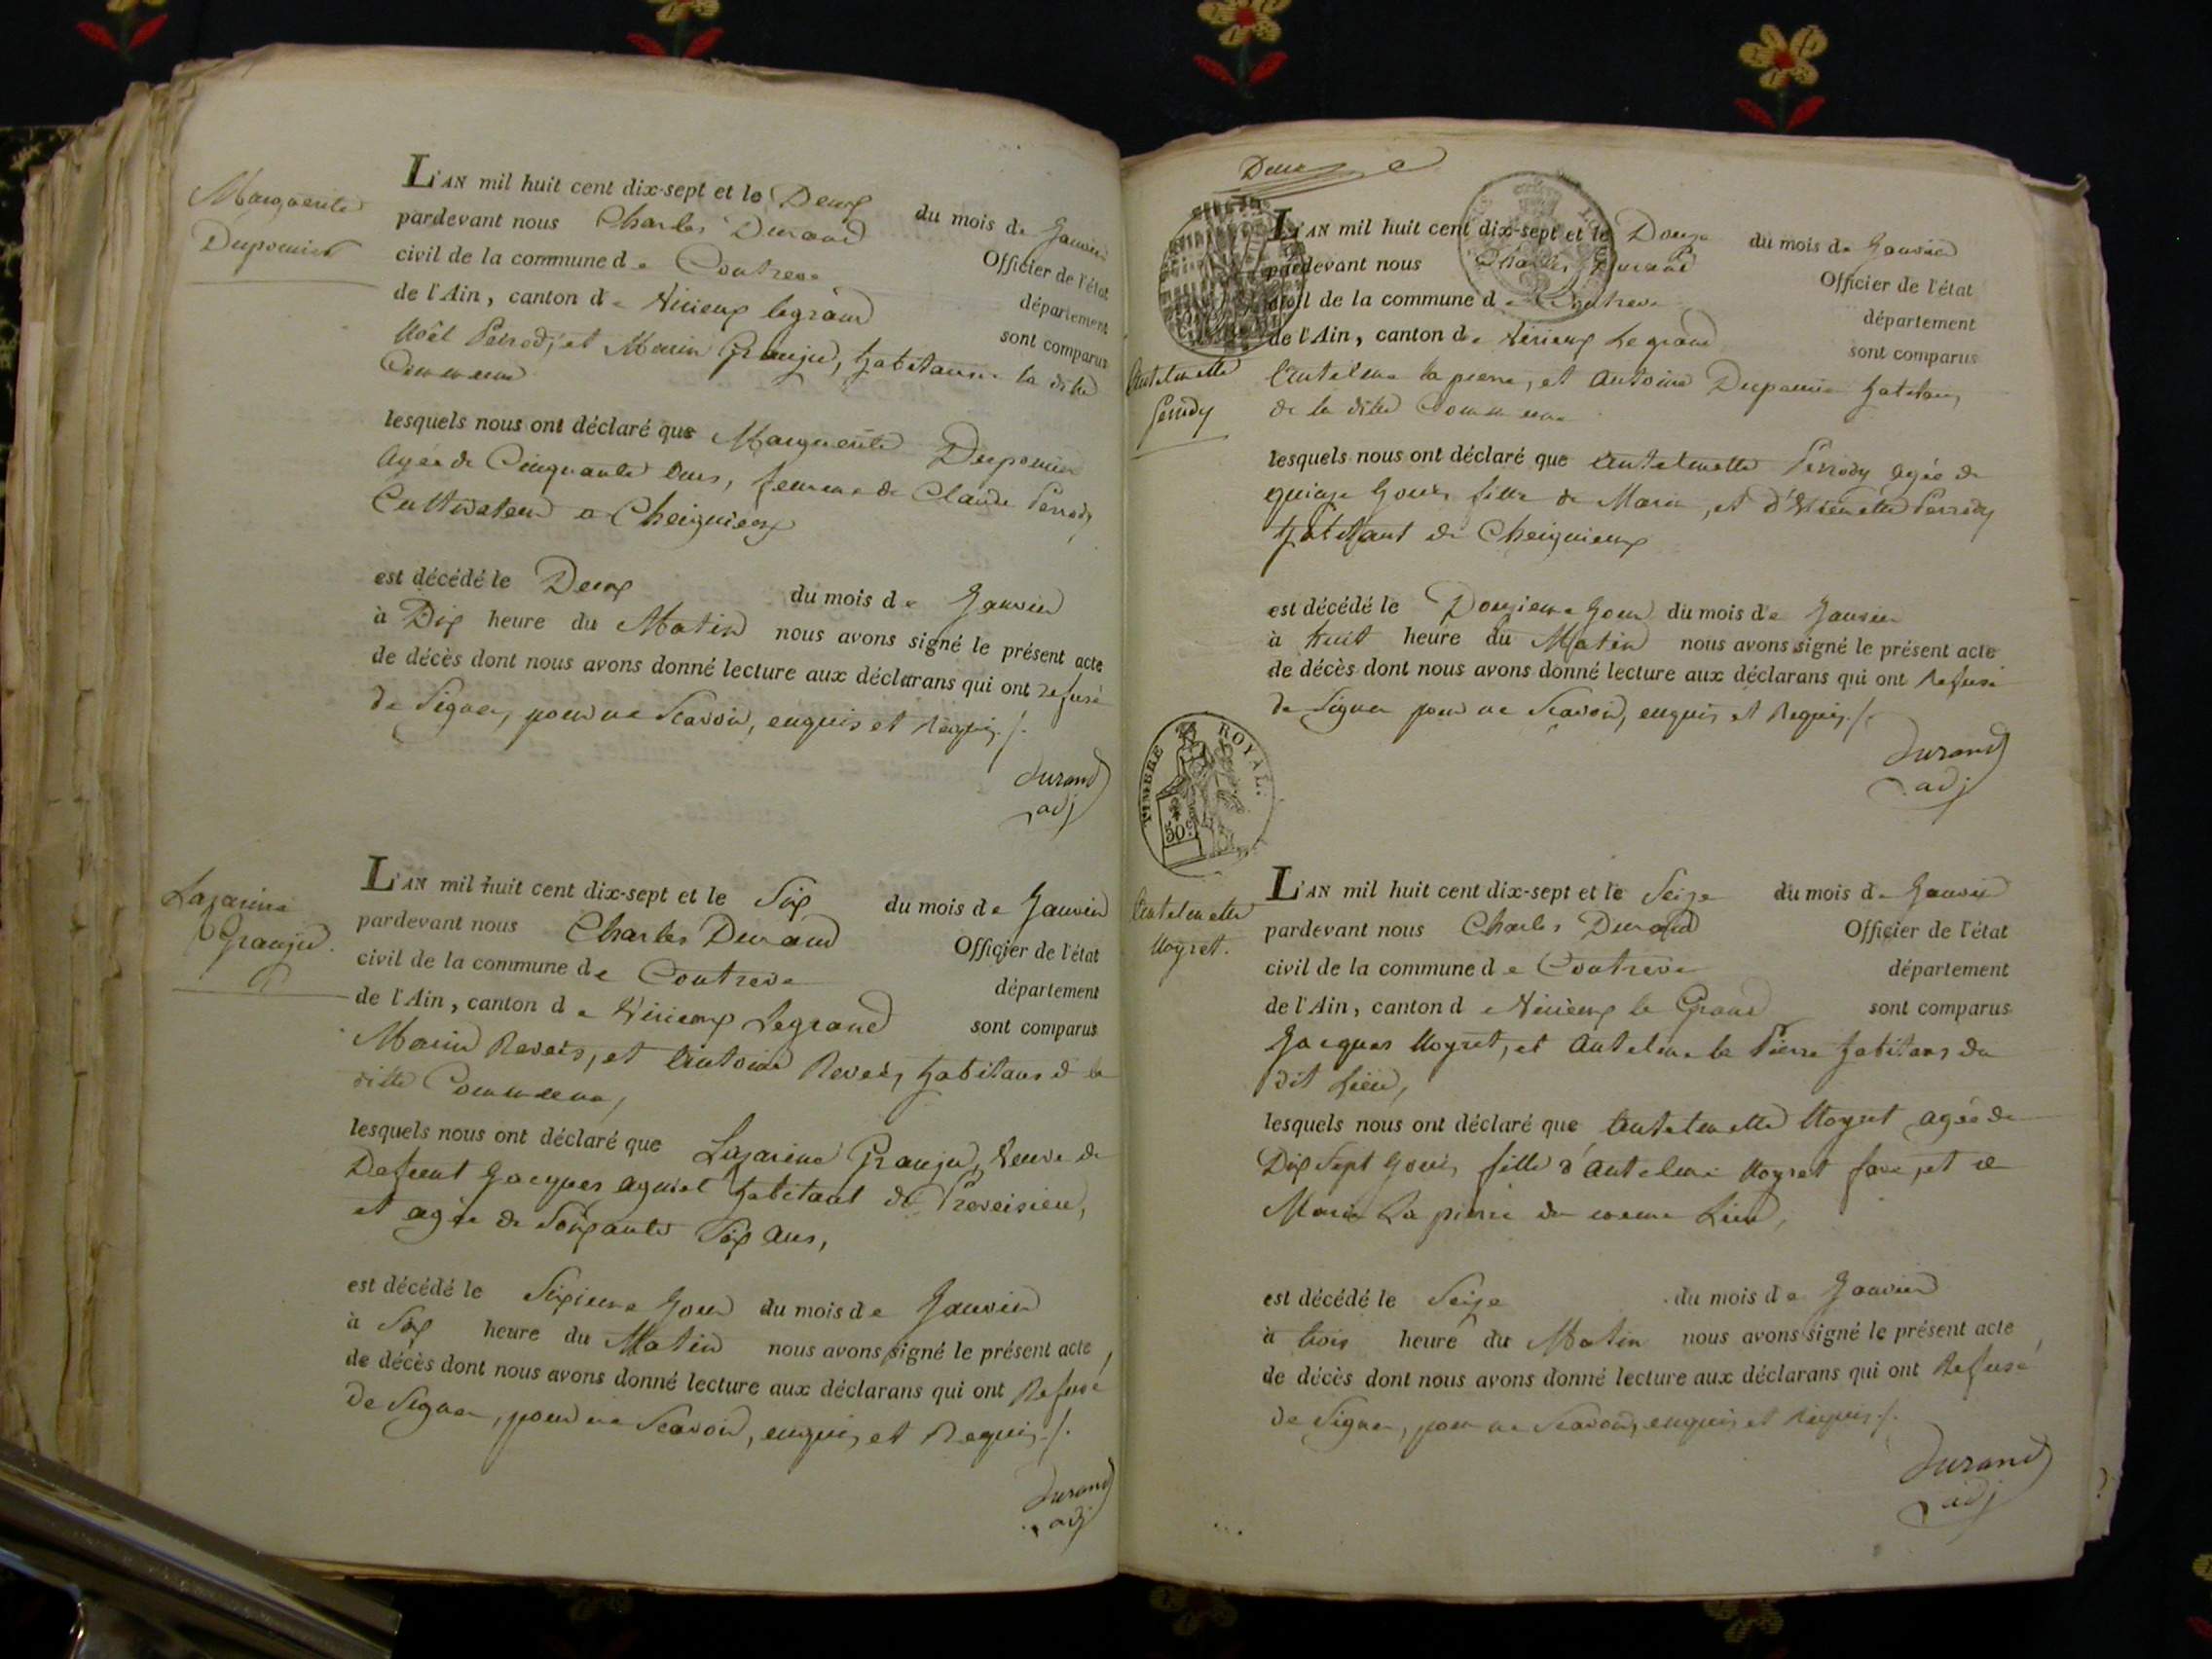 Marguerite
Duponier
L'AN mil huit cent dix-sept et le Deux du mois de Janvier
pardevant nous Charles Durand Officier de l'état
civil de la commune de Contreve département
de l'Ain, canton de Virieux legrand sont comparus
Noël Perrod, et Marin Granju, habitans la dite
Commune
lesquels nous ont déclaré que Marguerite Duponier
Agée de Cinquante Ans, femme de Claude Perrody
Cultivateur a Cheignieux
est décédé le Deux du mois de Janvier
à Dix heure du Matin nous avons signé le présent acte
de décès dont nous avons donné lecture aux déclarans qui ont refusé
de Signer, pour ne Scavoir, enquis et Requis./.
Durand
adj
Lazarine
Granju.
L'AN mil huit cent dix-sept et le Six du mois de Janvier
pardevant nous Charles Durand Officier de l'état
civil de la commune de Contreve département
de l'Ain, canton de Virieux Legrand sont comparus
Marin Reveis, et Antoine Reveis, habitans de la
ditte Commune,
lesquels nous ont déclaré que Lazarine Granju, Veuve de
Defunt Jacques habitant de
et agée de Soixante Six Ans,
est décédé le Sixieme Jour du mois de Janvier
à Six heure du Matin nous avons signé le présent acte,
de décès dont nous avons donné lecture aux déclarans qui ont Refusé
de Signer, pour ne Scavoir, enquis, et Requis./.
Durand
adj
Deux
L'AN mil huit cent dix-sept et le Douze du mois de Janvier
pardevant nous Charles Durand Officier de l'état
civil de la commune de Contreve département
de l'Ain, canton de Virieux Le grand sont comparus
Antelmette
Perrody
Antelme la pierre, et Antoine Duponier habitans
de la ditte Commune
lesquels nous ont déclaré que Antelmette Perrody Agée de
quinze Jours, fille de Marin, et d'Etiennette Perrody
habitant de Cheignieux
est décédé le Douzieme Jour du mois de Janvier
à huit heure du Matin nous avons signé le présent acte
de décès dont nous avons donné lecture aux déclarans qui ont Refusé
de Signer pour ne Scavoir, enquis et Requis./.
Durand
adj
TIMBRE ROYAL.
50c
Antelmette
Moyret.
L'AN mil huit cent dix-sept et le Seize du mois de Janvier
pardevant nous Charles Durand Officier de l'état
civil de la commune de Contreve département
de l'Ain, canton de Virieux le Grand sont comparus
Jacques Moyret, et Antelme la Pierre habitans du
dit Lieu,
lesquels nous ont déclaré que Antelmette Moyret agée de
Dix Sept Jours, fille d'Antelme Moyret et de
Marie La pierre du meme Lieu,
est décédé le Seize du mois de Janvier
à trois heure du Matin nous avons signé le présent acte,
de décès dont nous avons donné lecture aux déclarans qui ont Refusé
de Signer, pour ne Scavoir, enquis, et Requis./.
Durand
adj